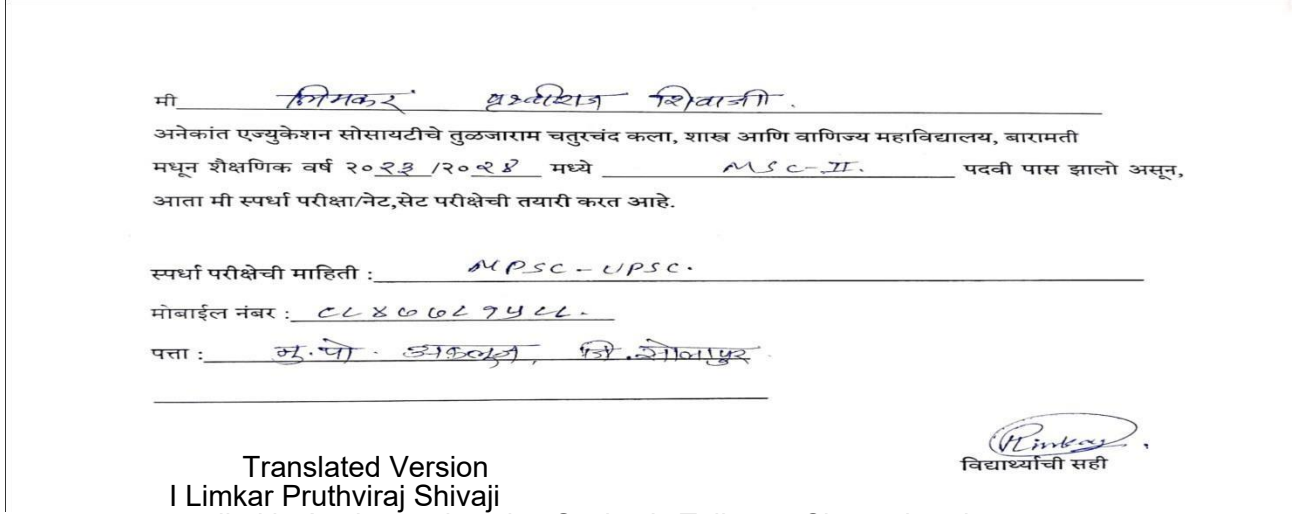 मी लिमकर पृथ्वीराज शिवाजी.
अनेकांत एज्युकेशन सोसायटीचे तुळजाराम चतुरचंद कला, शास्त्र आणि वाणिज्य महाविद्यालय, बारामती
मधून शैक्षणिक वर्ष २०२३/२०२४ मध्ये MSC-II. पदवी पास झालो असून,
आता मी स्पर्धा परीक्षा/नेट,सेट परीक्षेची तयारी करत आहे.
स्पर्धा परीक्षेची माहिती : MPSC - UPSC.
मोबाईल नंबर :
पत्ता : मु.पो. अकलूज, जि.सोलापूर
Limkar
विद्यार्थ्याची सही
Translated Version
I Limkar Pruthviraj Shivaji